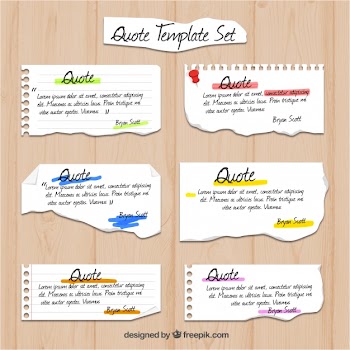 Quote Template Set
Quote
"
Lorem ipsum dolor sit amet, consectetur adipiscing
elit. Maecenas ac ultricies lacus. Proin tristique mi
vitae auctor egestas. Vivamus
"
Bryan Scott
Quote
Lorem ipsum dolor sit amet, consectetur adipiscing
elit. Maecenas ac ultricies lacus. Proin tristique mi
vitae auctor egestas. Vivamus
Bryan Scott
Quote
Lorem ipsum dolor sit amet, consectetur adipiscing
elit. Maecenas ac ultricies lacus. Proin tristique mi
vitae auctor egestas. Vivamus
Bryan Scott
Quote
Lorem ipsum dolor sit amet, consectetur adipiscing
elit. Maecenas ac ultricies lacus. Proin tristique mi
vitae auctor egestas. Vivamus
Bryan Scott
Quote
Lorem ipsum dolor sit amet, consectetur adipiscing
elit. Maecenas ac ultricies lacus. Proin tristique mi
vitae auctor egestas. Vivamus
Bryan Scott
Quote
Lorem ipsum dolor sit amet, consectetur adipiscing
elit. Maecenas ac ultricies lacus. Proin tristique mi
vitae auctor egestas. Vivamus
Bryan Scott
designed by freepik.com